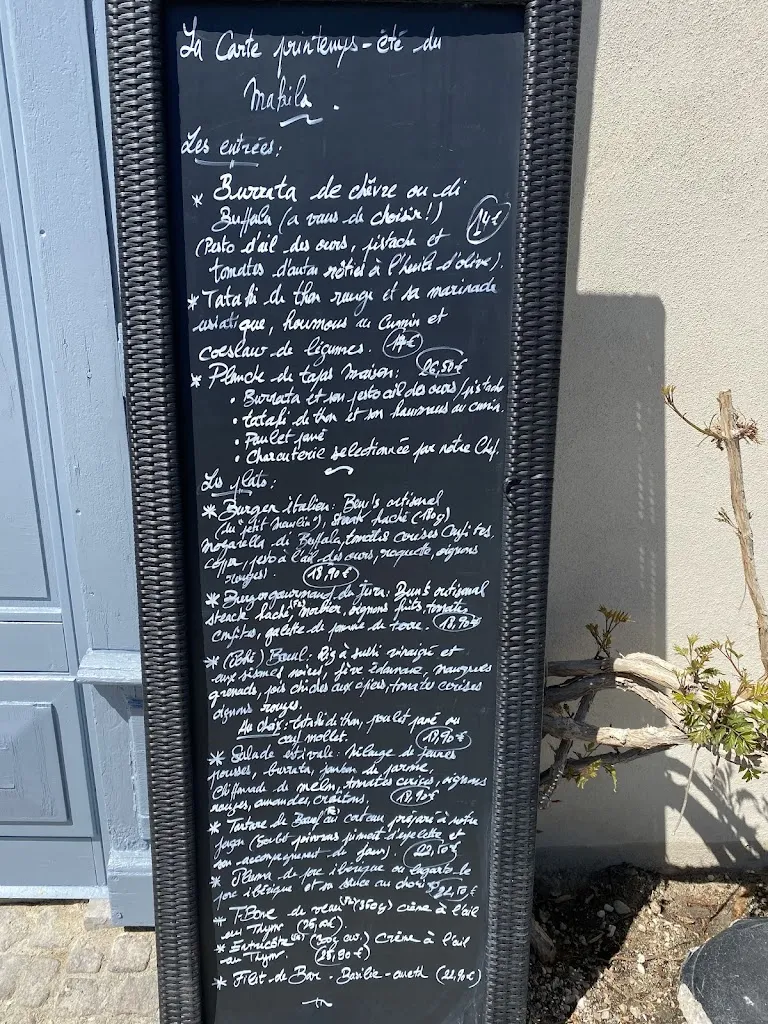 La Carte printemps-été du
Makila.
Les entrées:
* Burrata de chèvre ou di
Buffala (a vous de choisir!) 14€
(Pesto d'ail des ours, pistache et
tomates d'antan rôties à l'huile d'olive).
* Tataki de thon rouge et sa marinade
asiatique, houmous au Cumin et
coeslaw de légumes.
* Planche de tapas maison: 26,50€
• Burrata et son pesto ail des ours/pistache
• tataki de thon et son houmous au cumin.
• Poulet pané
• Charcuterie selectionnée par notre Chef.
Les plats:
* Burger italien: Bun's artisanal
(du "petit Moulin"), steak haché (180g)
Mozarella di Buffala, tomates cerises Confites,
coppa, pesto à l'ail des ours, roquette, oignons
rouges). 18,90€
* Burger gourmand du Jura: Bun's artisanal
steack haché, morbier, oignons frits, tomates
confites, galette de pomme de terre. 18,90€
* (Poké) Bowl: Riz à sushi vinaigré et
aux sésames noires, fève Edamame, mangues
grenade, pois chiches aux épices, tomates cerises
oignons rouges.
Au choix: tataki de thon, poulet pané ou
oeuf mollet.
* Salade estivale: Mélange de jeunes
pousses, burrata, jambon de parme,
Chiffonade de melon, tomates cerises, oignons
rouges, amandes, croûtons. 18,90€
* Tartare de Boeuf au couteau préparé à notre
façon (Basilic poivrons piment d'espelette et
son accompagnement du jour).
* Pluma de porc ibérique ou lagarto de
porc ibérique et sa sauce au choix
* T-Bone de veau (350g) crème à l'ail
au Thym
* Entrecôte (300g env.) crème à l'ail
au Thym. (28,90€)
* Filet de Bar - Basilic-aneth